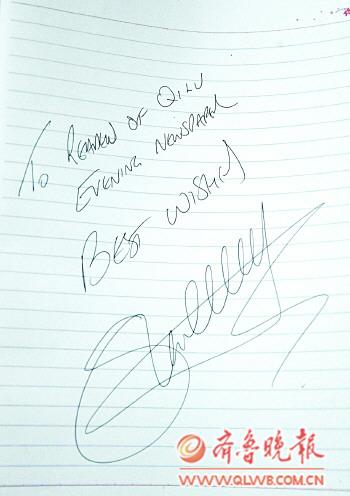 To READERS OF QILU
EVENING NEWSPAPER
BEST WISHES
齐鲁晚报
WWW.QLWB.COM.CN